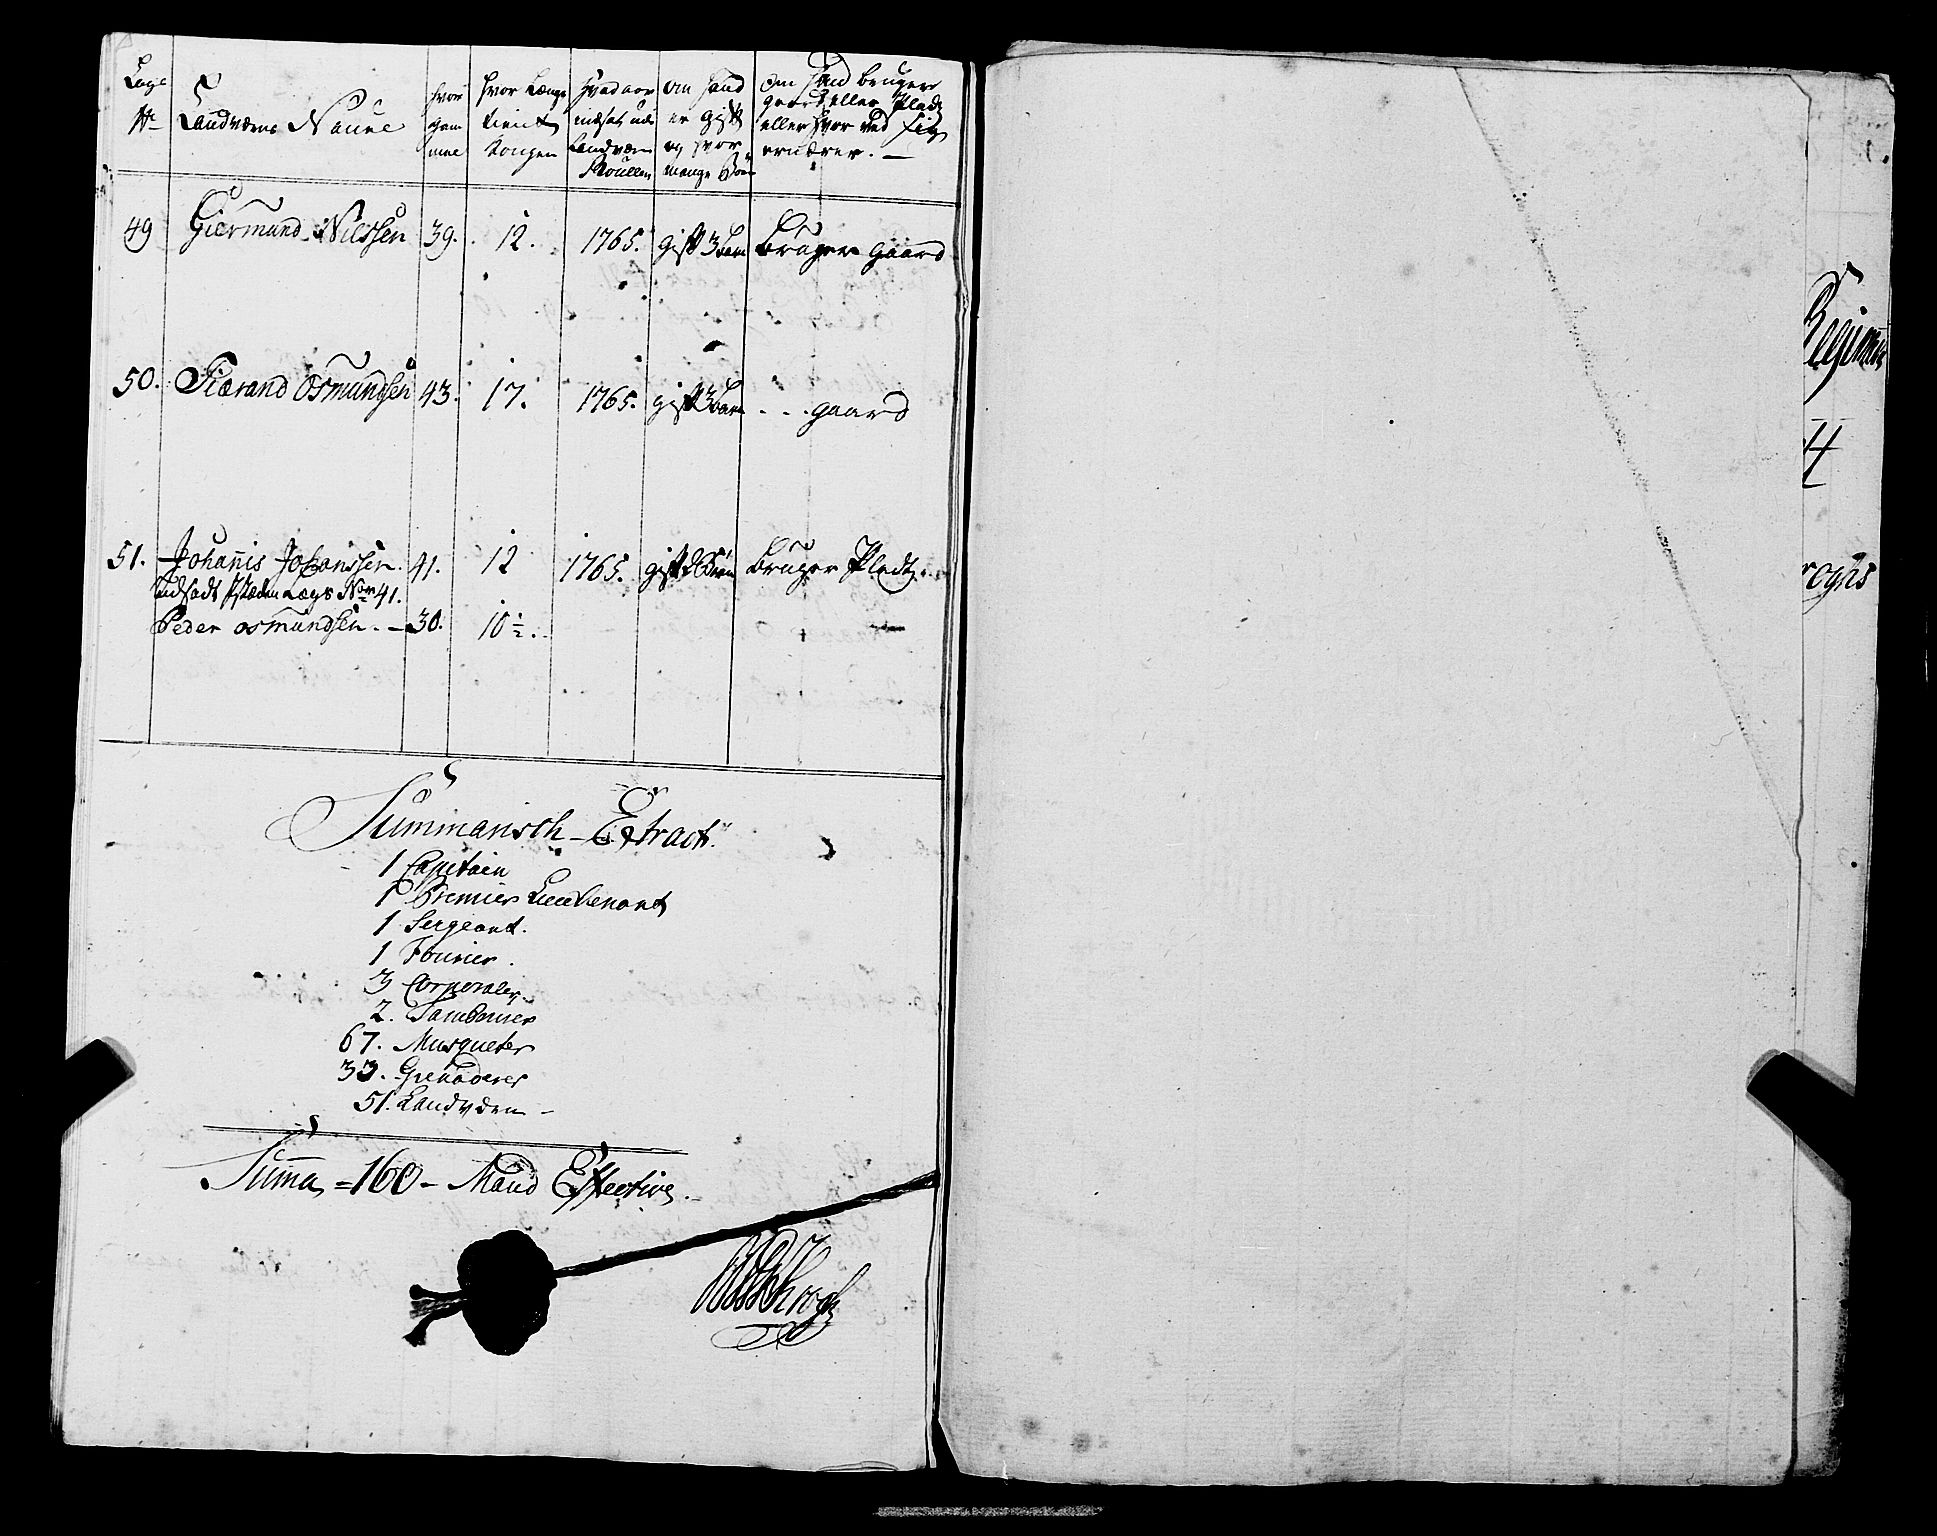 Lægs
No
Landværns Navne
hvor
gam
mel
hvor Længe
tient
Kongen
hvad aar
indsat udi
Landværn
Roullen
om hand
er gift
og hvor
mange Börn
om hand bruger
gaard eller Pladtz
eller hvor ved sig
ernærer. —
49 Giermund Nilssen 39. 12. 1765. gift 3 barn Bruger gaard
50. Tiærand Osmundsen 43. 17. 1765. gift 3 barn - - - gaard
51. Johannis Johanssen. 41. 12 1765. gift 2 Börn Bruger Pladtz
udsadt Lægs No 41.
Peder osmundsen. — 30. 10 1/2.
Summarisch — Extract.
1 Capitain
1 Premier Lieutenant
1 Sergeant.
1 Fourier.
3 Corporaler
2. Tambourer
67. Musqueter
33. Grenaderer
51. Landværn —
Summa = 160 — Mand Effective.
Regimen
roghs